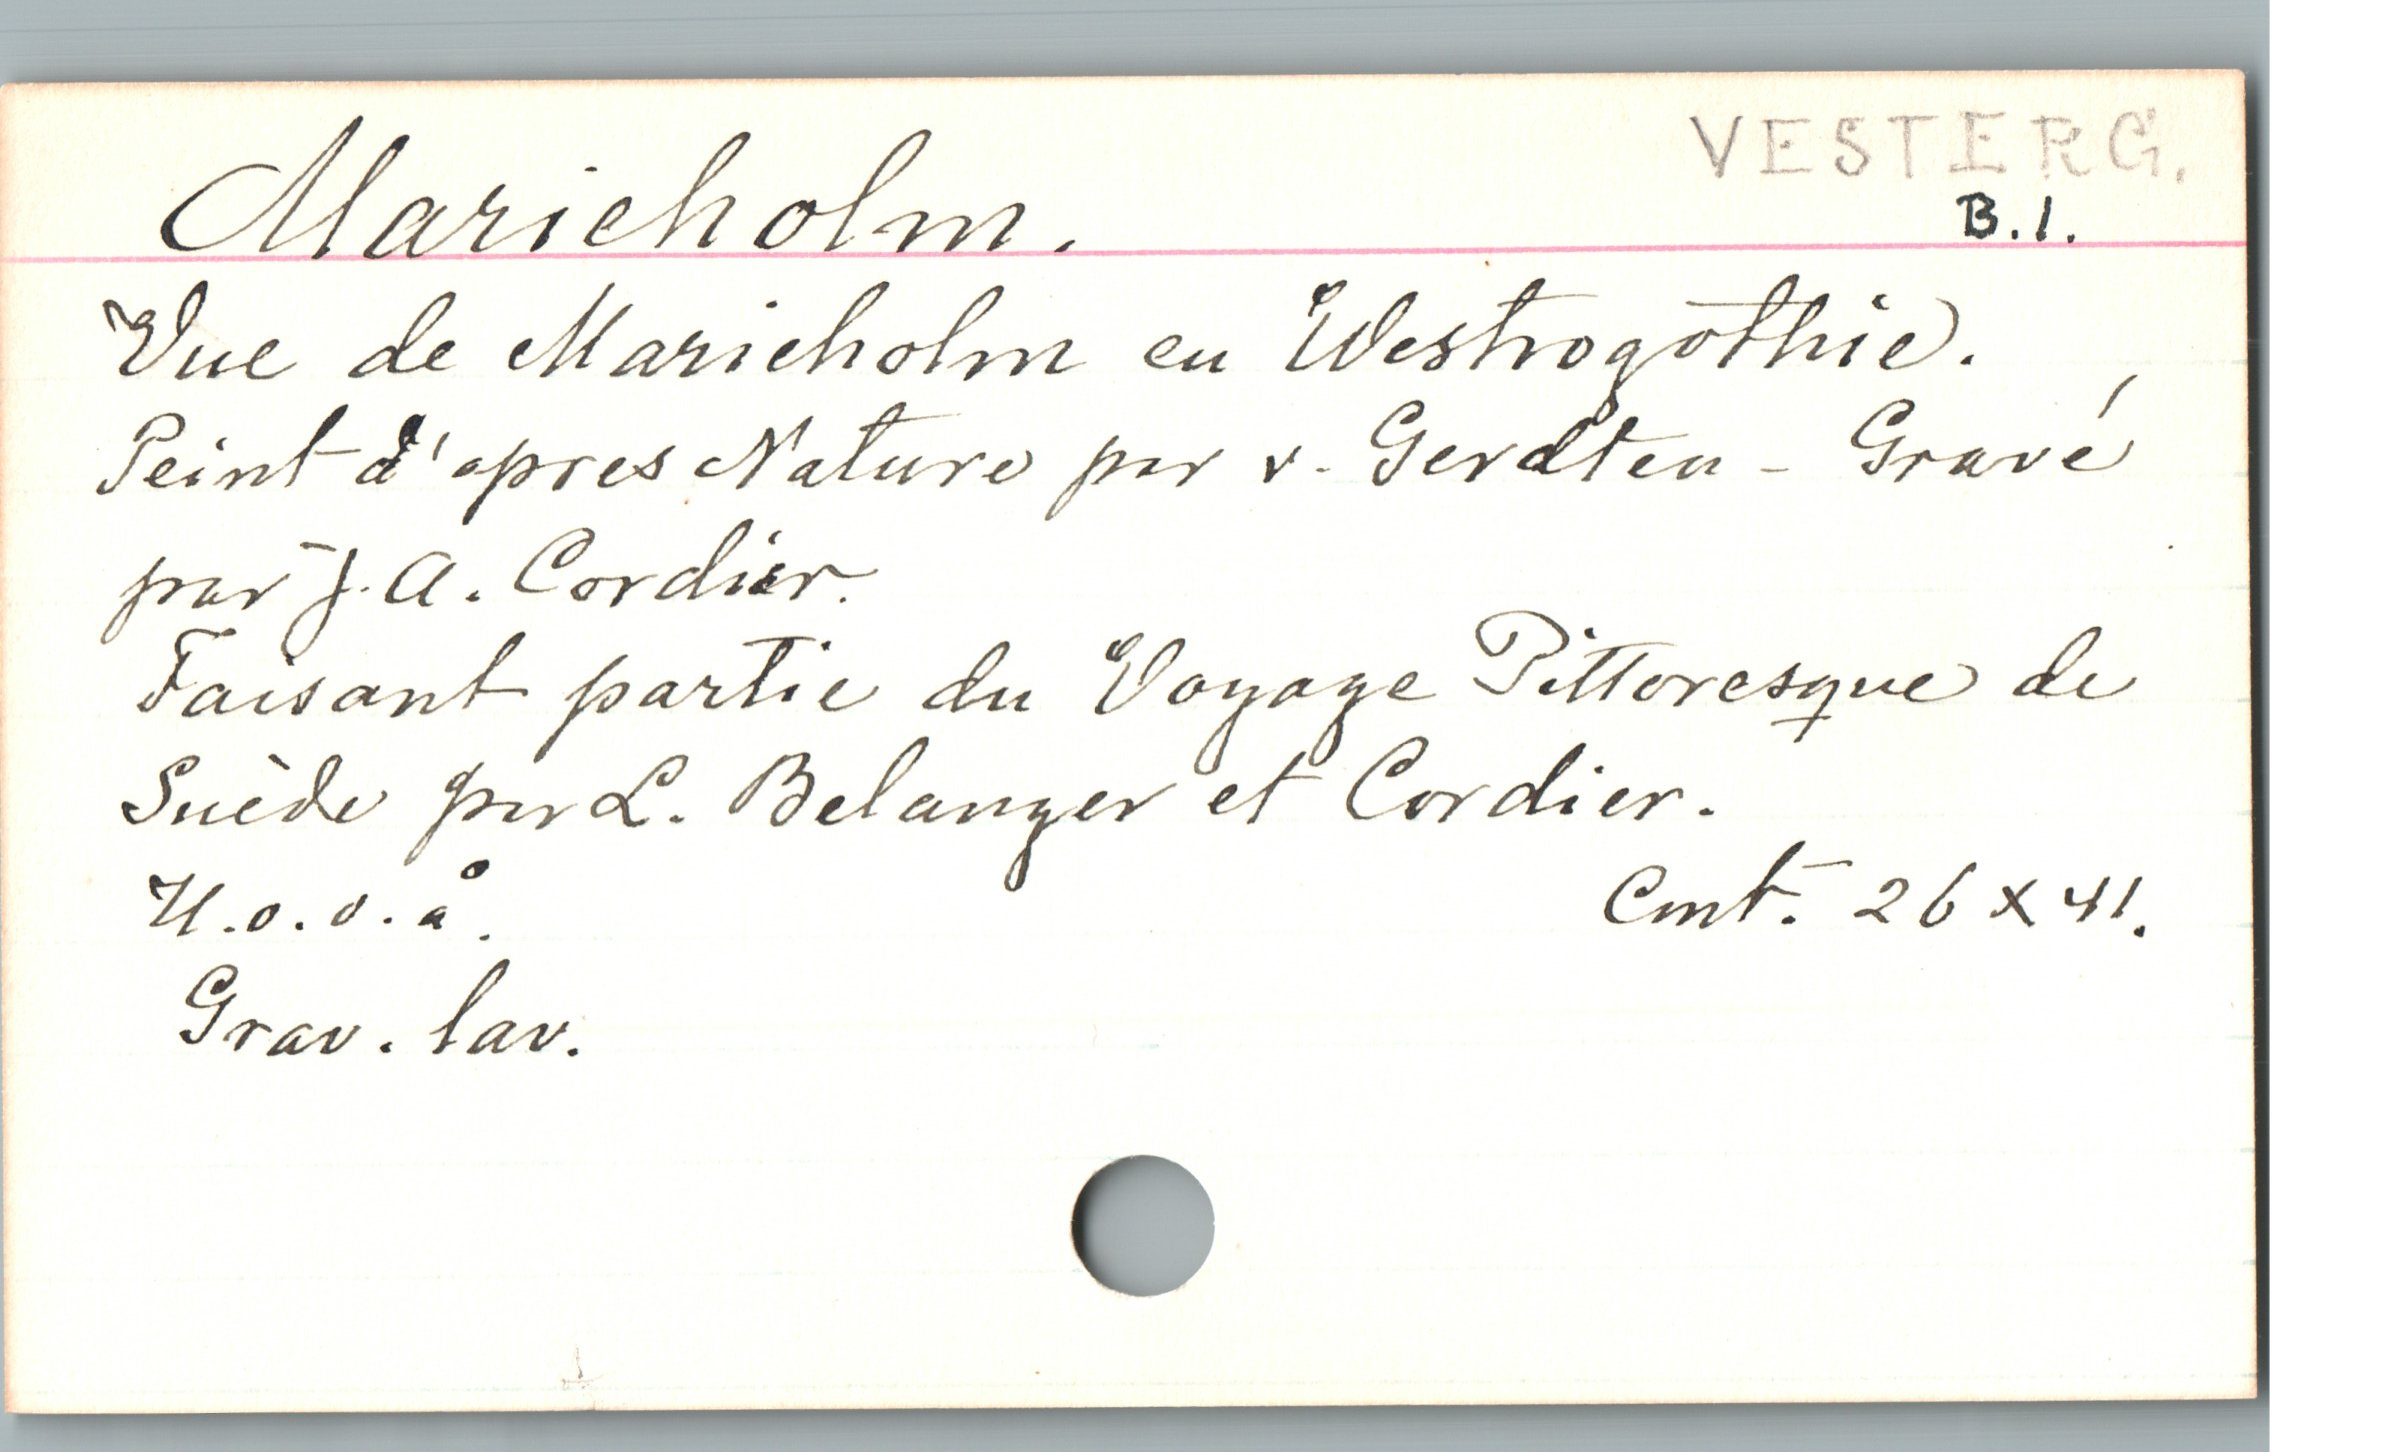 VESTERG.
Marieholm.
B.1.
Vue de Marieholm en Westrogothie.
Peint d'apres Nature par v. Gerdten - Gravé
par J. A. Cordier.
Faisant partie du Voyage Pittoresque de
Suède par L. Belanger et Cordier.
U.o.o.å. Cmt. 26 x 41.
Grav. lav.